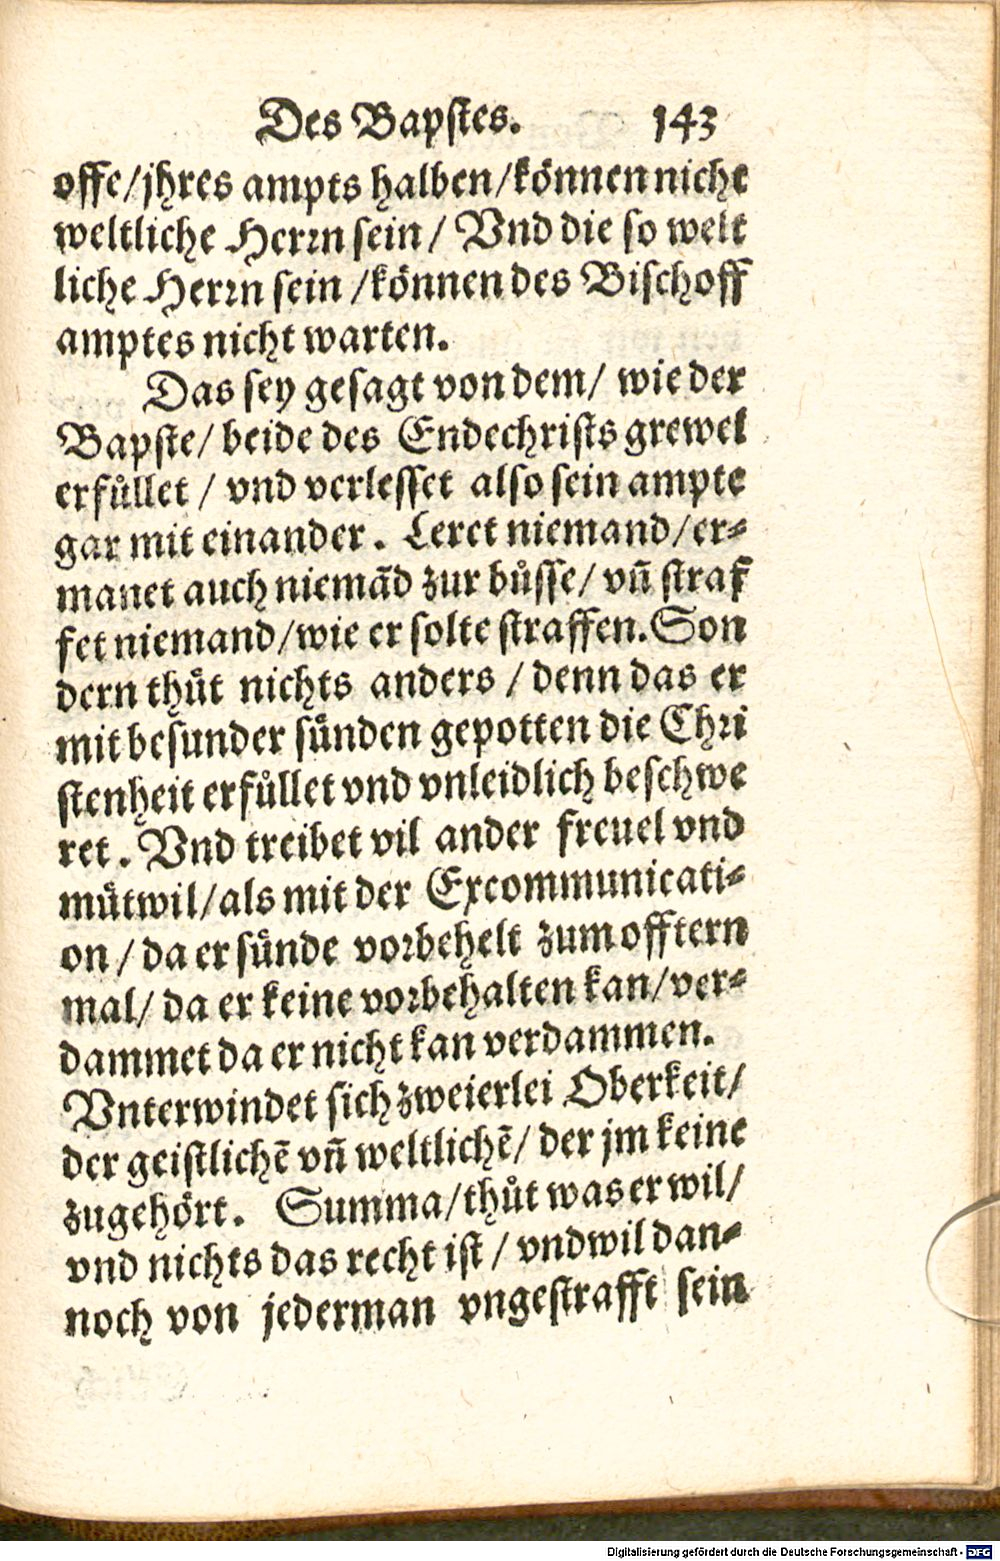 Des Bapstes. 143
offe/jhres ampts halben/können nicht
weltliche Herrn sein/ Vnd die so welt
liche Herrn sein /können des Bischoff
amptes nicht warten.
Das sey gesagt von dem/ wie der
Bapste/ beide des Endechrists grewel
erfüllet / vnd verlesset also sein ampte
gar mit einander. Leret niemand/er-
manet auch niemãd zur bůsse/ vñ straf
fet niemand/wie er solte straffen. Son
dern thůt nichts anders / denn das er
mit besunder sünden gepotten die Chri
stenheit erfüllet vnd vnleidlich beschwe
ret. Vnd treibet vil ander freuel vnd
můtwil/als mit der Excommunicati-
on / da er sünde vorbehelt zum offtern
mal/ da er keine vorbehalten kan/ver-
dammet da er nicht kan verdammen.
Vnterwindet sich zweierlei Oberkeit/
der geistlichẽ vñ weltlichẽ/ der jm keine
zugehört. Summa/thůt was er wil/
vnd nichts das recht ist / vnd wil dan-
noch von jederman vngestrafft sein
Digitalisierung gefördert durch die Deutsche Forschungsgemeinschaft - DFG